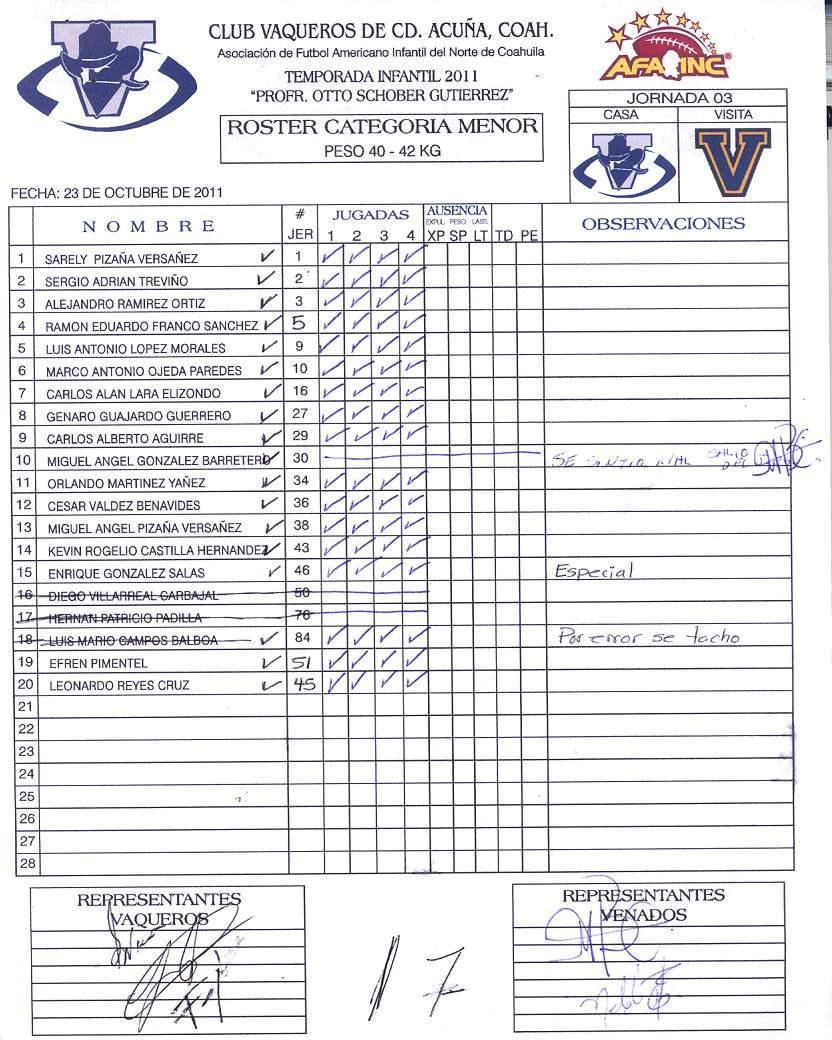 CLUB VAQUEROS DE CD. ACUÑA, COAH.
Asociación de Futbol Americano Infantil del Norte de Coahuila
TEMPORADA INFANTIL 2011
"PROFR. OTTO SCHOBER GUTIERREZ"
ROSTER CATEGORIA MENOR
PESO 40 - 42 KG
AFAINC®
JORNADA 03
CASA VISITA
V V
FECHA: 23 DE OCTUBRE DE 2011
NOMBRE # JER JUGADAS 1 2 3 4 AUSENCIA EXPUL PESO LAST. XP SP LT TD PE OBSERVACIONES
1 SARELY PIZAÑA VERSAÑEZ ✓ 1 ✓ ✓ ✓ ✓
2 SERGIO ADRIAN TREVIÑO ✓ 2 ✓ ✓ ✓ ✓
3 ALEJANDRO RAMIREZ ORTIZ ✓ 3 ✓ ✓ ✓ ✓
4 RAMON EDUARDO FRANCO SANCHEZ ✓ 5 ✓ ✓ ✓ ✓
5 LUIS ANTONIO LOPEZ MORALES ✓ 9 ✓ ✓ ✓ ✓
6 MARCO ANTONIO OJEDA PAREDES ✓ 10 ✓ ✓ ✓ ✓
7 CARLOS ALAN LARA ELIZONDO ✓ 16 ✓ ✓ ✓ ✓
8 GENARO GUAJARDO GUERRERO ✓ 27 ✓ ✓ ✓ ✓
9 CARLOS ALBERTO AGUIRRE ✓ 29 ✓ ✓ ✓ ✓
10 MIGUEL ANGEL GONZALEZ BARRETERO ✓ 30 SE SINTIO MAL SALIO DEL
11 ORLANDO MARTINEZ YAÑEZ ✓ 34 ✓ ✓ ✓ ✓
12 CESAR VALDEZ BENAVIDES ✓ 36 ✓ ✓ ✓ ✓
13 MIGUEL ANGEL PIZAÑA VERSAÑEZ ✓ 38 ✓ ✓ ✓ ✓
14 KEVIN ROGELIO CASTILLA HERNANDEZ ✓ 43 ✓ ✓ ✓ ✓
15 ENRIQUE GONZALEZ SALAS ✓ 46 ✓ ✓ ✓ ✓ Especial
16 DIEGO VILLARREAL CARBAJAL 50
17 HERNAN PATRICIO PADILLA 76
18 LUIS MARIO CAMPOS BALBOA ✓ 84 ✓ ✓ ✓ ✓ Por error se tacho
19 EFREN PIMENTEL ✓ 51 ✓ ✓ ✓ ✓
20 LEONARDO REYES CRUZ ✓ 45 ✓ ✓ ✓ ✓
21
22
23
24
25
26
27
28
REPRESENTANTES
VAQUEROS
17
REPRESENTANTES
VENADOS